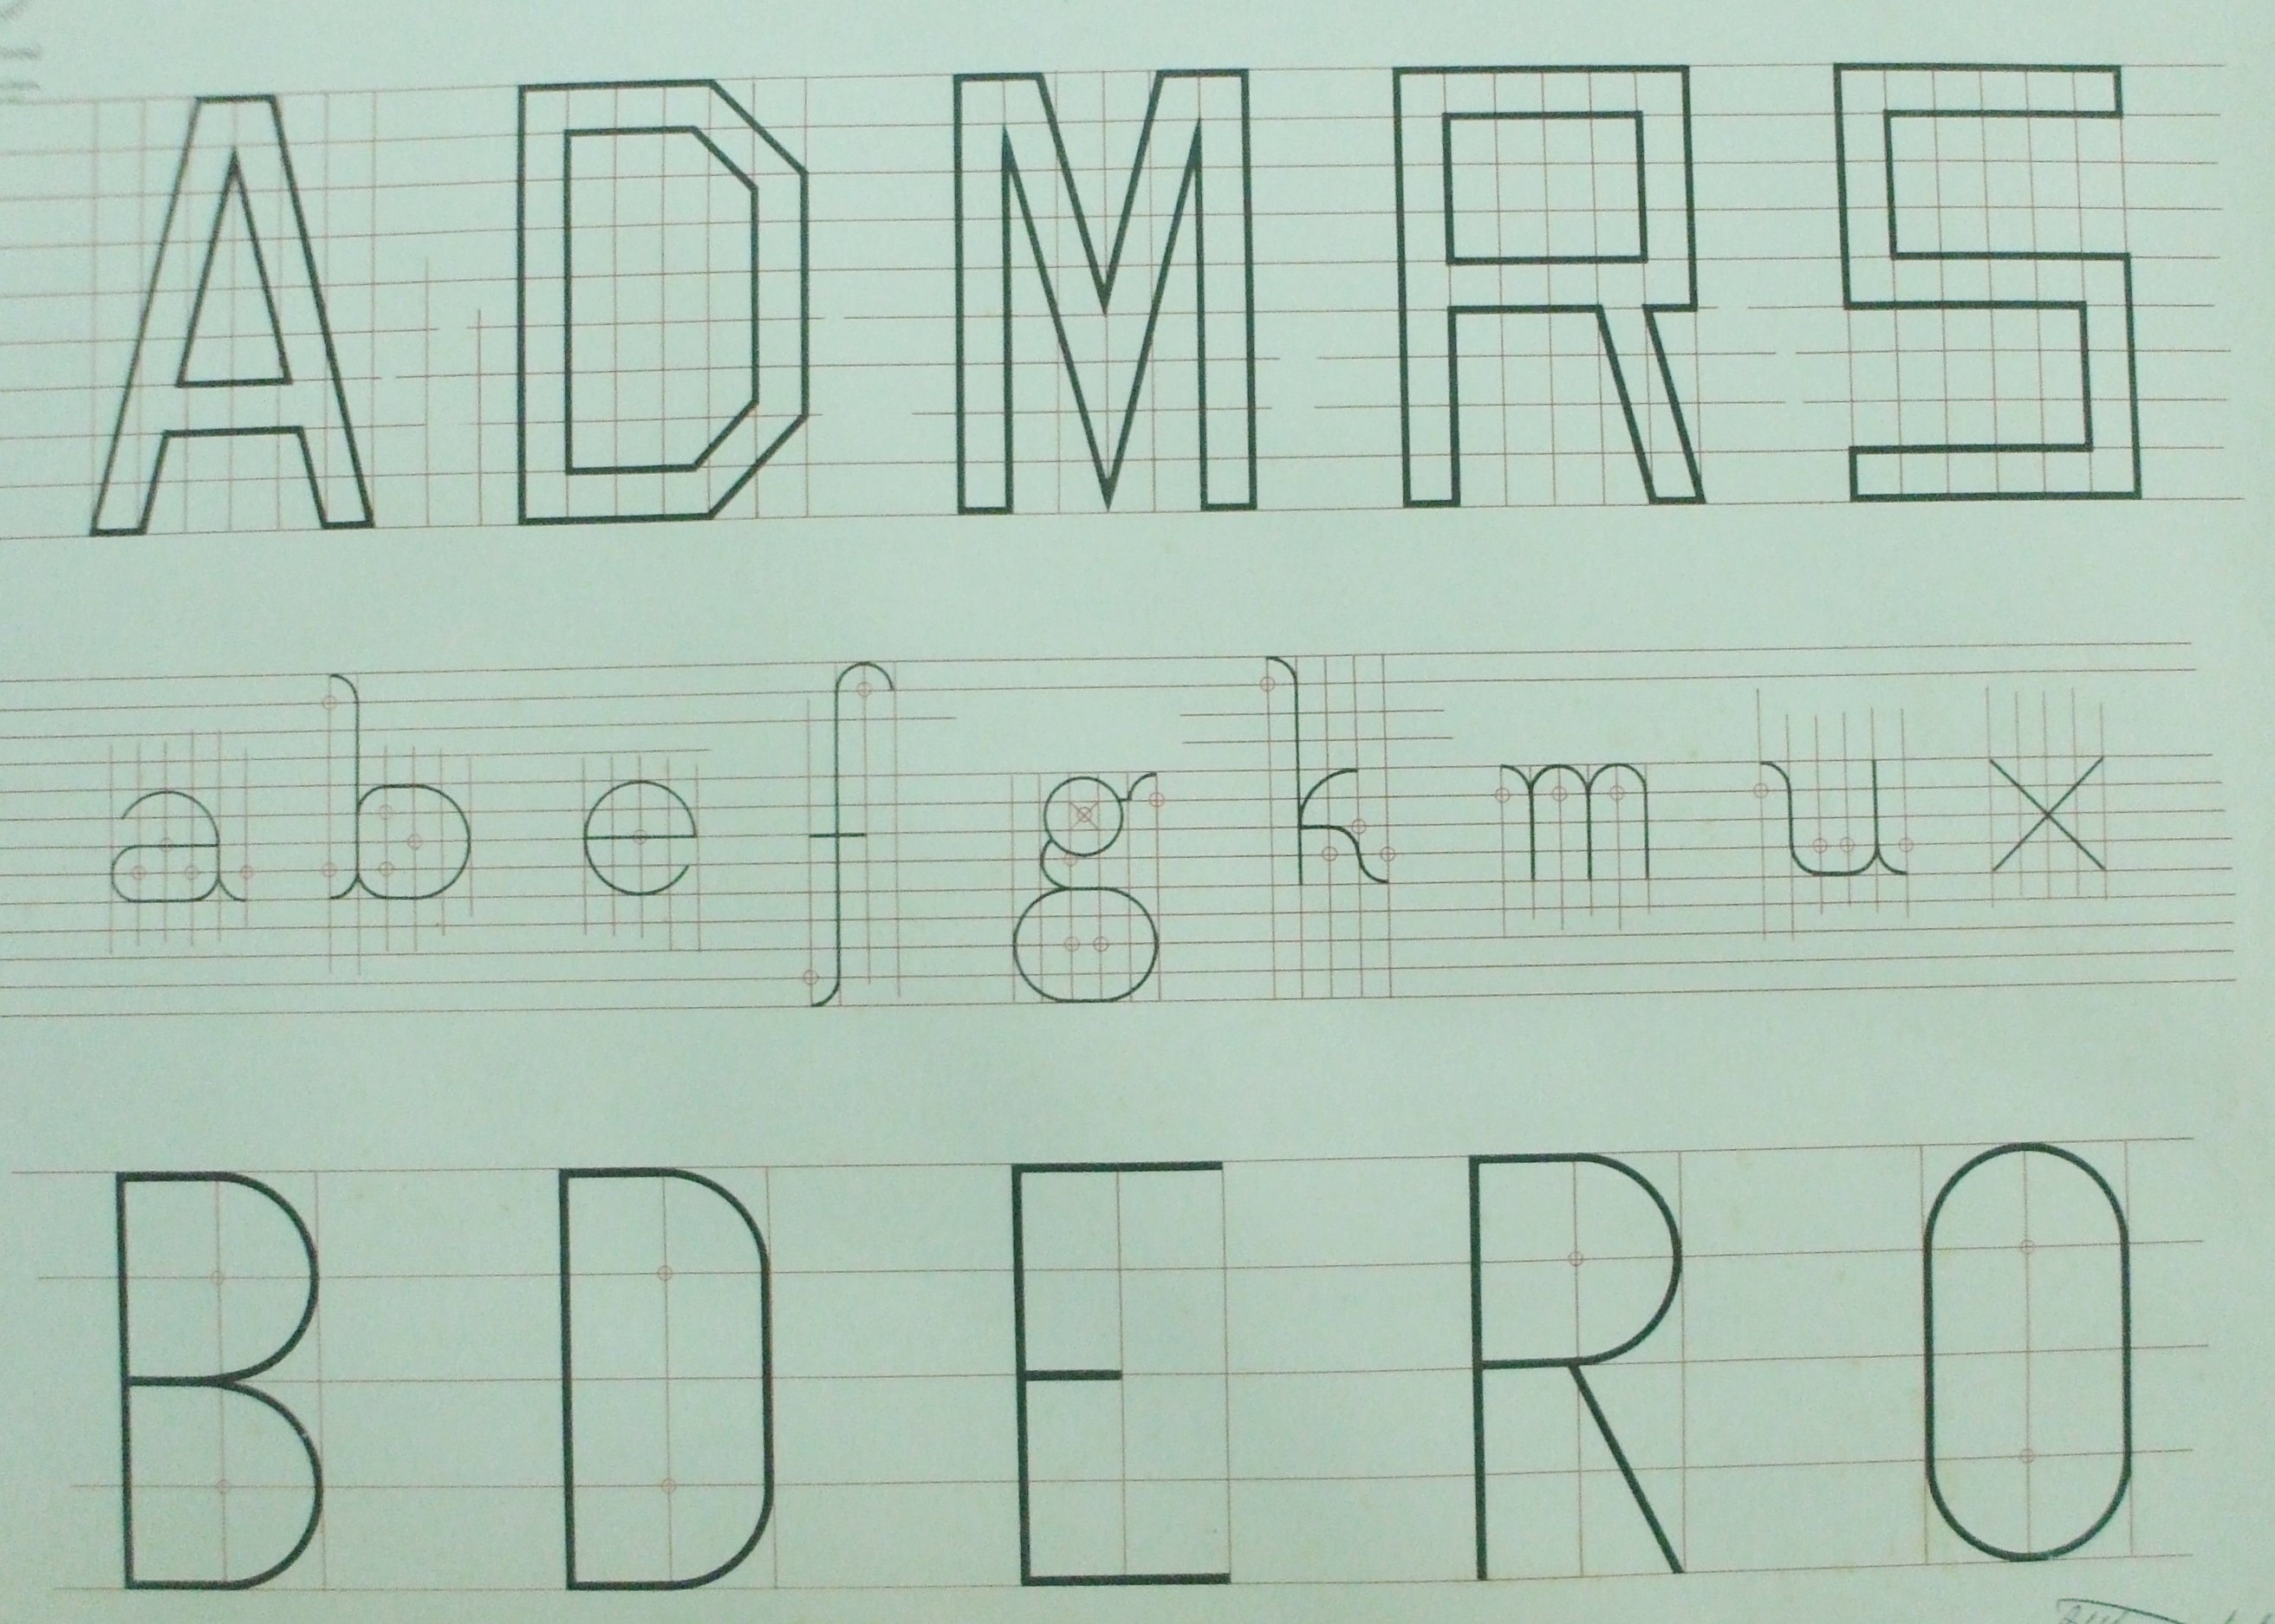 A D M R S
a b e f g k m u x
B D E R O